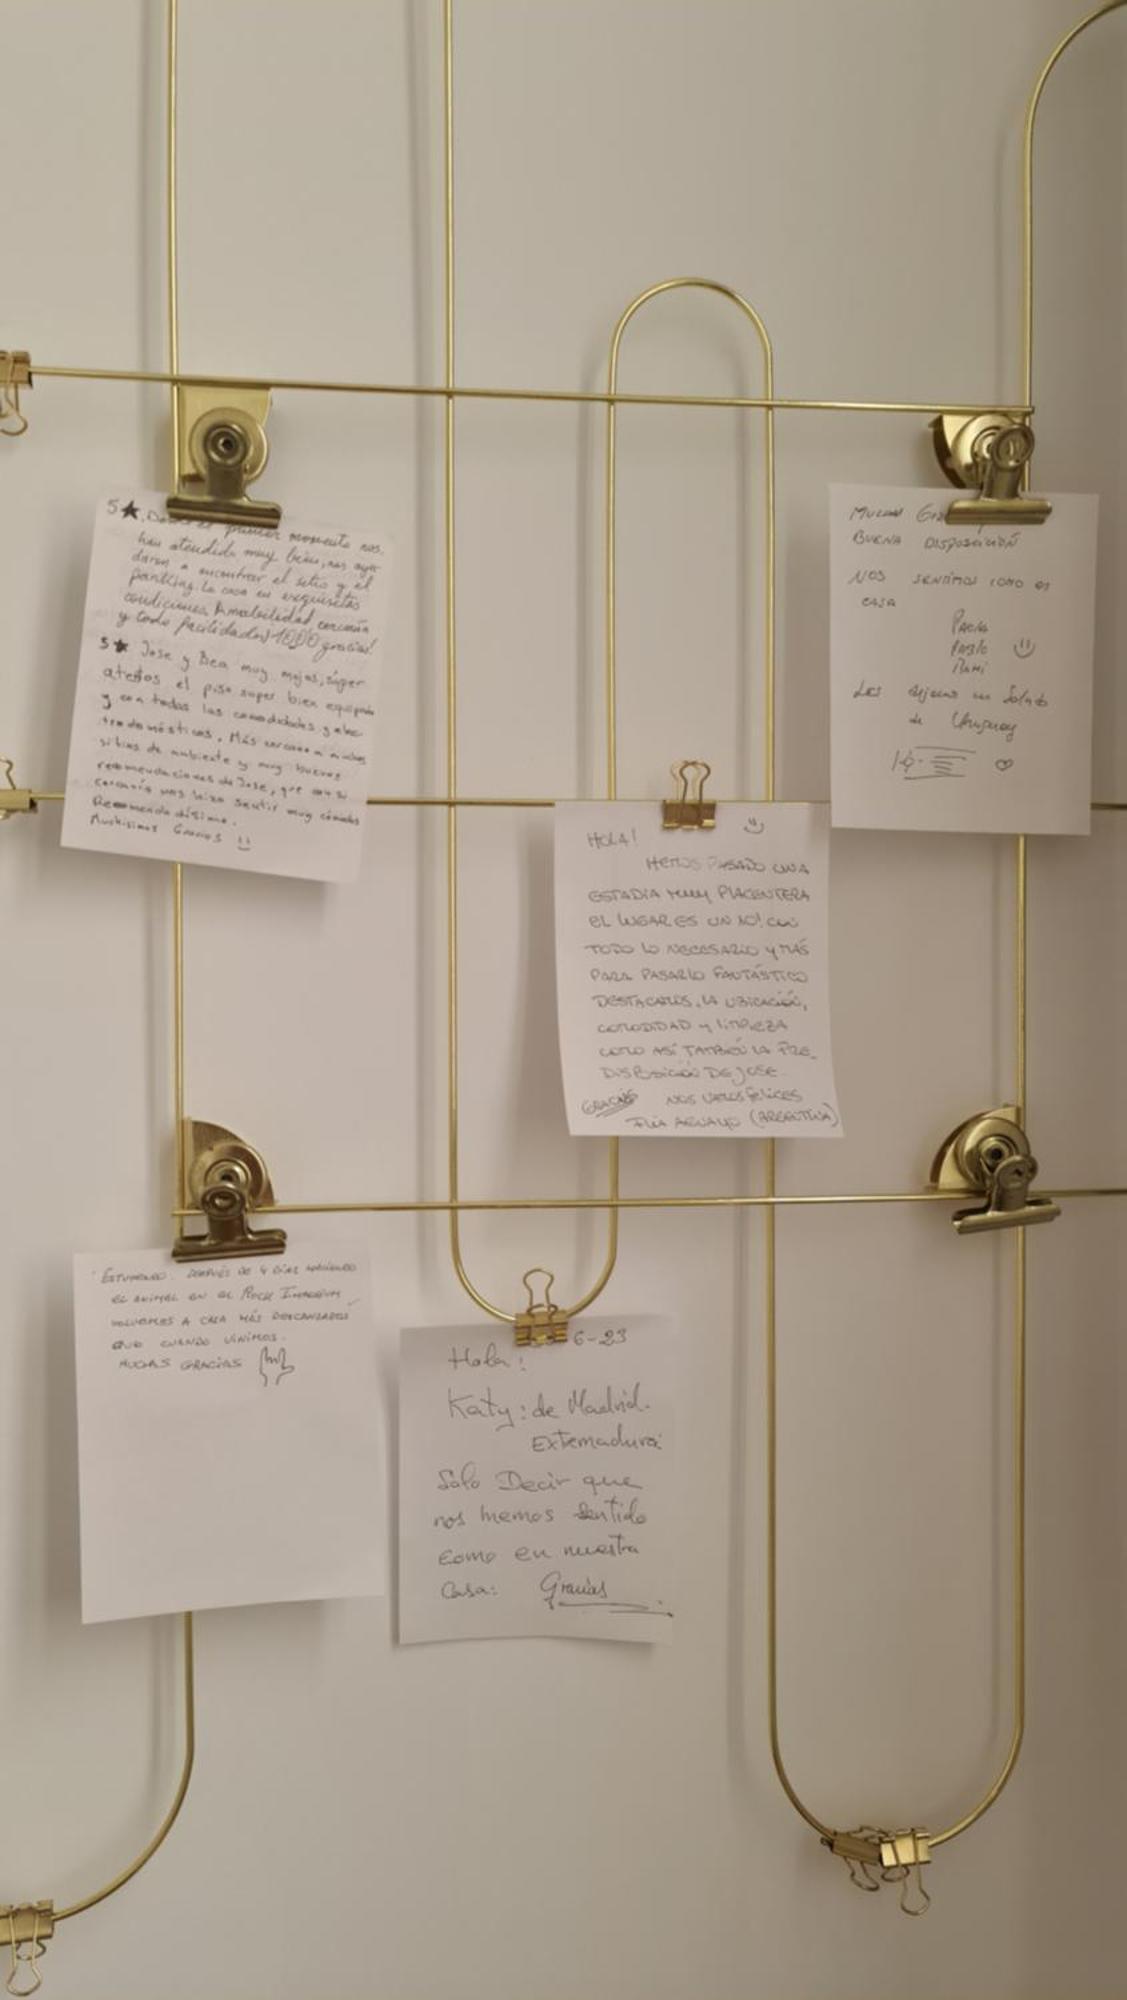 5★. Desde el primer momento nos
han atendido muy bien, nos ayu-
daron a encontrar el sitio y el
parking. La casa en exquisitas
condiciones. Amabilidad, cercanía
y todo facilidades! 1000 gracias!
5★ Jose y Bea muy majos, súper
atentos el piso super bien equipado
y con todas las comodidades y elec-
trodomésticos. Más cercano a muchos
sitios de ambiente y muy buenas
recomendaciones de Jose, que con su
cercanía nos hizo sentir muy cómodos
Recomendadísimo.
Muchísimas Gracias
Muchas
BUENA DISPOSICIÓN
NOS SENTIMOS COMO EN
CASA
PAULA
PABLO
Les dejamos un Saludo
de Uruguay
HOLA!
HEMOS PASADO UNA
ESTADÍA MUY PLACENTERA
EL LUGAR ES UN 10! CON
TODO LO NECESARIO Y MÁS
PARA PASARLO FANTÁSTICO
DESTACAMOS, LA UBICACIÓN,
COMODIDAD Y LIMPIEZA
COMO ASÍ TAMBIÉN LA PRE-
DISPOSICIÓN DE JOSE.
GRACIAS NOS VAMOS FELICES
FLIA AGUAYO (ARGENTINA)
ESTUPENDO. DESPUÉS DE 4 DÍAS HACIENDO
EL ANIMAL EN EL ROCK IMPERIUM
VOLVEMOS A CASA MÁS DESCANSADOS
QUE CUANDO VINIMOS.
MUCHAS GRACIAS
6-23
Hola:
Katy: de Madrid.
Extremadura
Solo Decir que
nos hemos sentido
como en nuestra
Casa: Gracias